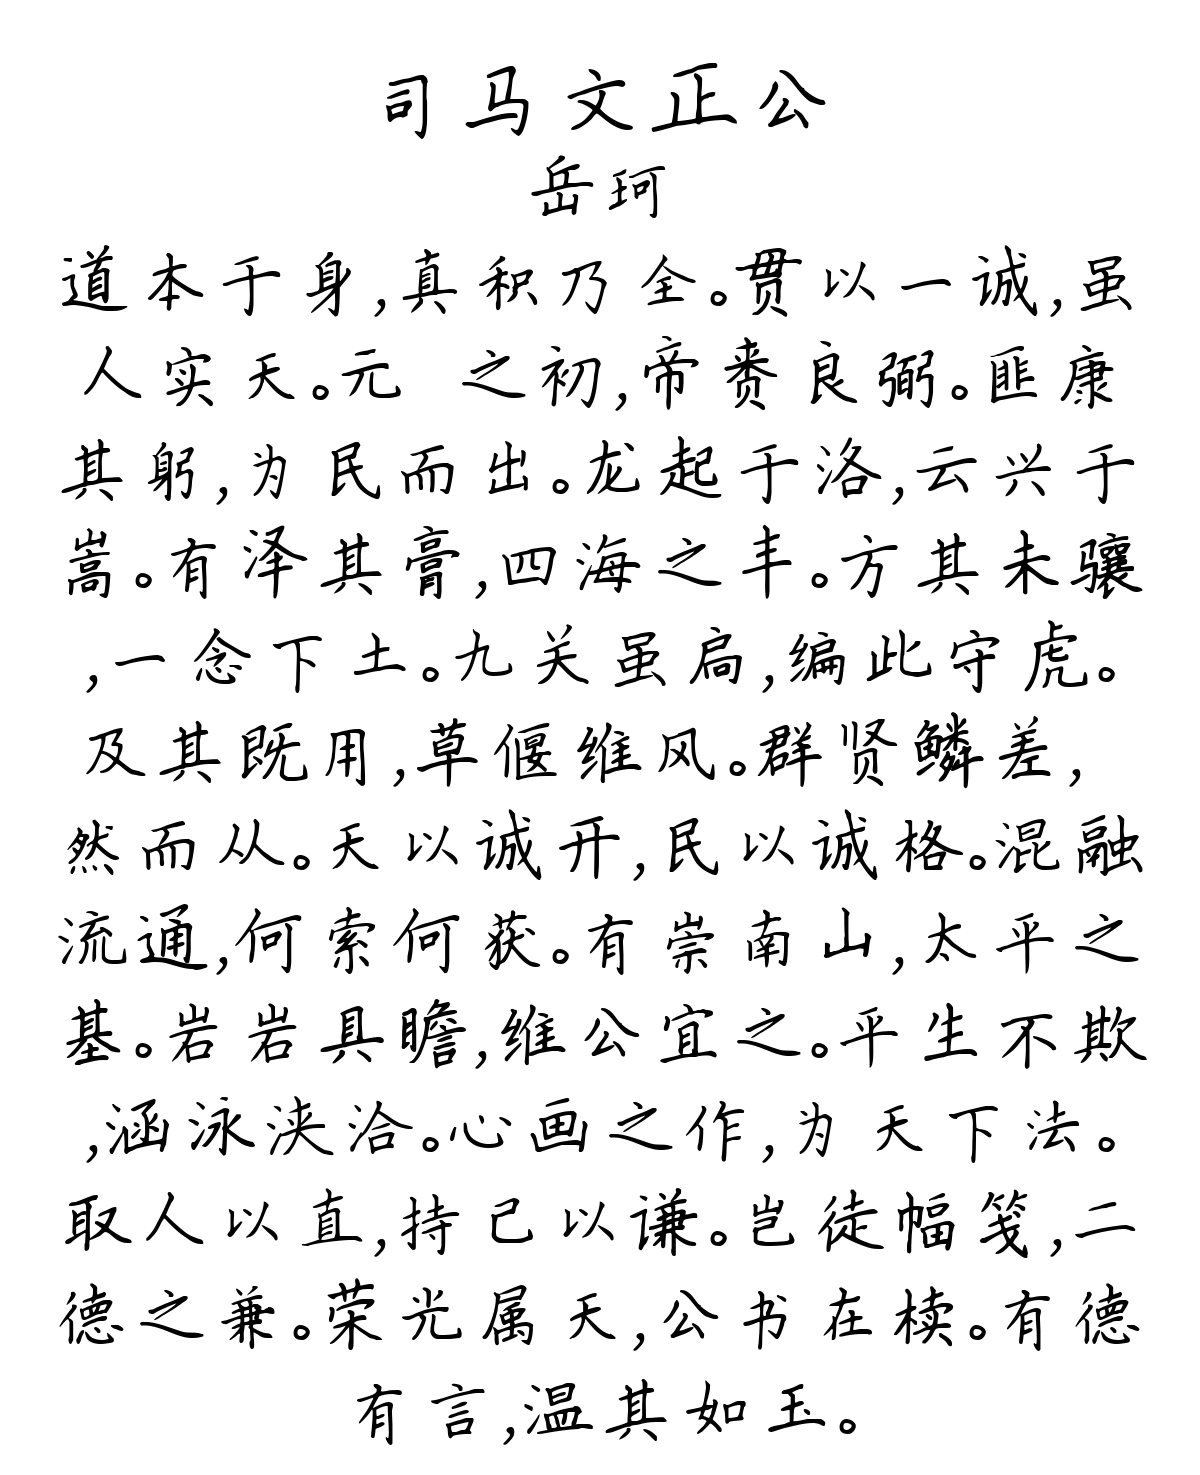 司马文正公
岳珂
道本于身,真积乃全。贯以一诚,虽
人实天。元 之初,帝赉良弼。匪康
其躬,为民而出。龙起于洛,云兴于
嵩。有泽其膏,四海之丰。方其未骧
,一念下土。九关虽扃,编此守虎。
及其既用,草偃维风。群贤鳞差,
然而从。天以诚开,民以诚格。混融
流通,何索何获。有崇南山,太平之
基。岩岩具瞻,维公宜之。平生不欺
,涵泳浃洽。心画之作,为天下法。
取人以直,持己以谦。岂徒幅笺,二
德之兼。荣光属天,公书在椟。有德
有言,温其如玉。